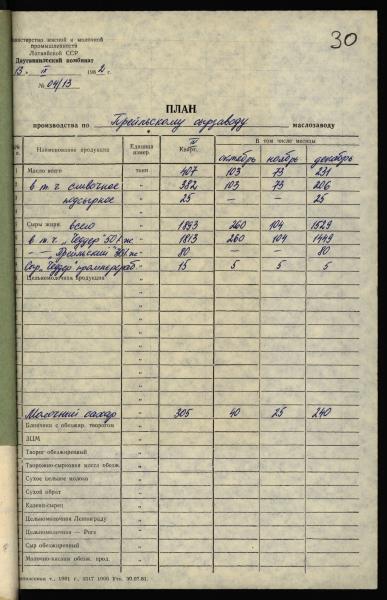 30
Министерство мясной и молочной
промышленности
Латвийской ССР
Даугавпилсский комбинат
13. IX 1982 г.
№ 04/13
ПЛАН
производства по Прейльскому сырзаводу маслозаводу
Наименование продукции Единица измер. IV Кварт. В том числе месяцы
октябрь ноябрь декабрь
Масло всего тонн 407 103 73 231
в т.ч. сливочное " 382 103 73 206
подсырное " 25 — — 25
Сыры жирн. всего " 1893 260 104 1529
в т.ч. „Чеддер" 50% ж " 1813 260 104 1449
— — „Прейльский" % ж " 80 80
Сыр „Чеддер" промперераб " 15 5 5 5
Цельномолочная продукция "
Молочный сахар " 305 40 25 240
Блинчики с обезжир. творогом "
ЗЦМ "
Творог обезжиренный "
Творожно-сырковая масса обезж. "
Сухое цельное молоко "
Сухой обрат "
Казеин-сырец "
Цельномолочная Ленинграду "
Цельномолочная — Риге "
Сыр обезжиренный "
Молочно-кислая обезж. прод. "
т., 1981 г., 2317 1000 30.07.81.